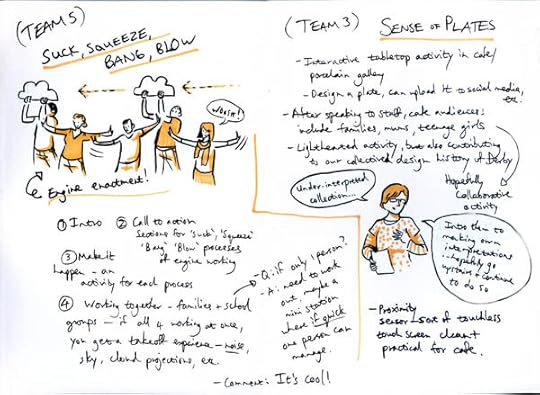 (TEAM 5)
SUCK, SQUEEZE,
BANG, BLOW
WOOSH!
Engine enactment!
① Intro ② Call to action
Sections for 'suck', 'squeeze'
'Bang' 'Blow' processes
if engine working
③ Make it
happen - an
activity for each process
④ Working together - families + school
groups - if all 4 working at once,
you get a takeoff experience - noise,
sky, cloud projections, etc.
- Q: if only 1 person?
- A: need to work
out, maybe a
mini station
where if quick
one person can
manage.
- Comment: It's cool!
(TEAM 3) SENSE OF PLATES
- Interactive tabletop activity in café/
porcelain gallery
- Design a plate, can upload it to social media,
etc.
- After speaking to staff, café audiences:
include families, mums, teenage girls
- Lighthearted activity, but also contributing
to our collective design history of Derby
Hopefully
Collaborative
activity
Under-interpreted
collection...
Into them to
making own
interpretations
...hopefully go
upstairs + continue
to do so
- Proximity
sensor - sort of touchless
touch screen clean +
practical for café.